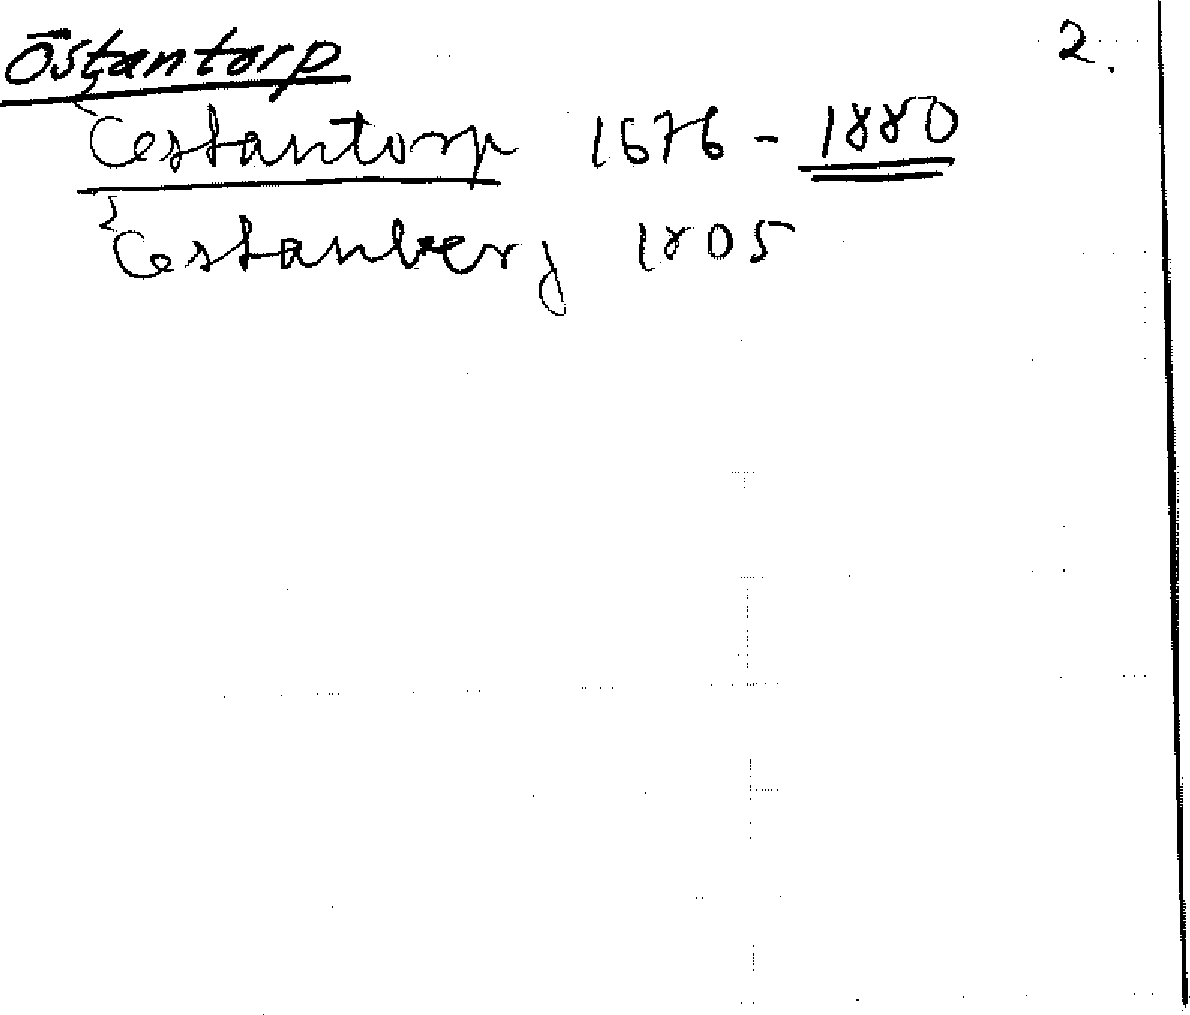 Östantorp 2.
Oestantorp 1676 - 1880
Oestanberg 1805